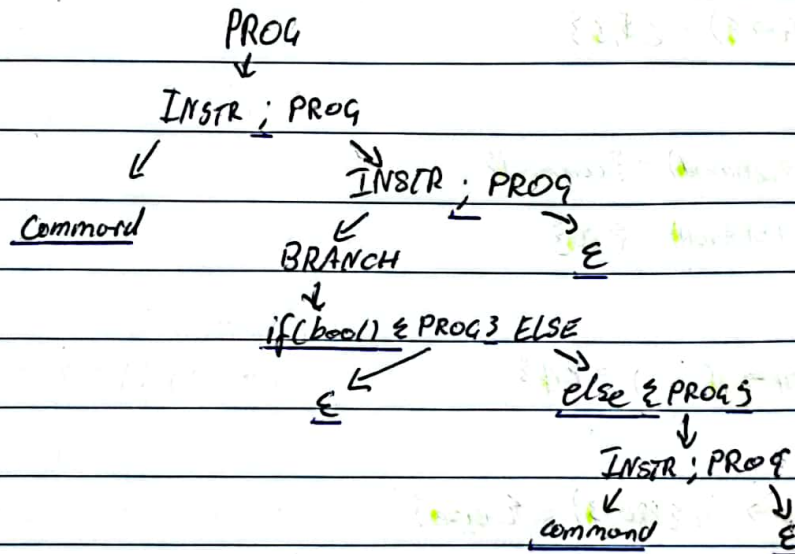 PROG
INSTR ; PROG
INSTR ; PROG
Command
BRANCH
ε
if(bool) { PROG } ELSE
ε
else { PROG }
INSTR ; PROG
command
ε